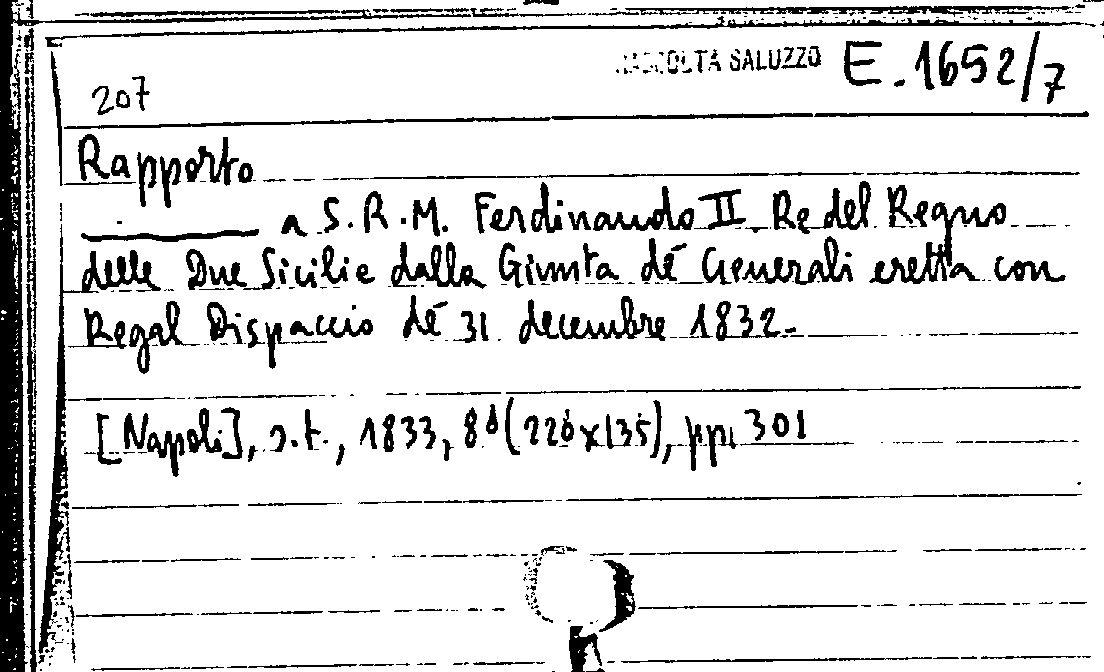 RACCOLTA SALUZZO E. 1652/7
207
Rapporto
_______ a S.R.M. Ferdinando II. Re del Regno
delle Due Sicilie dalla Giunta de' Generali eretta con
Regal Dispaccio de' 31 decembre 1832.
[Napoli], s.t., 1833, 8° (226x135), pp. 301